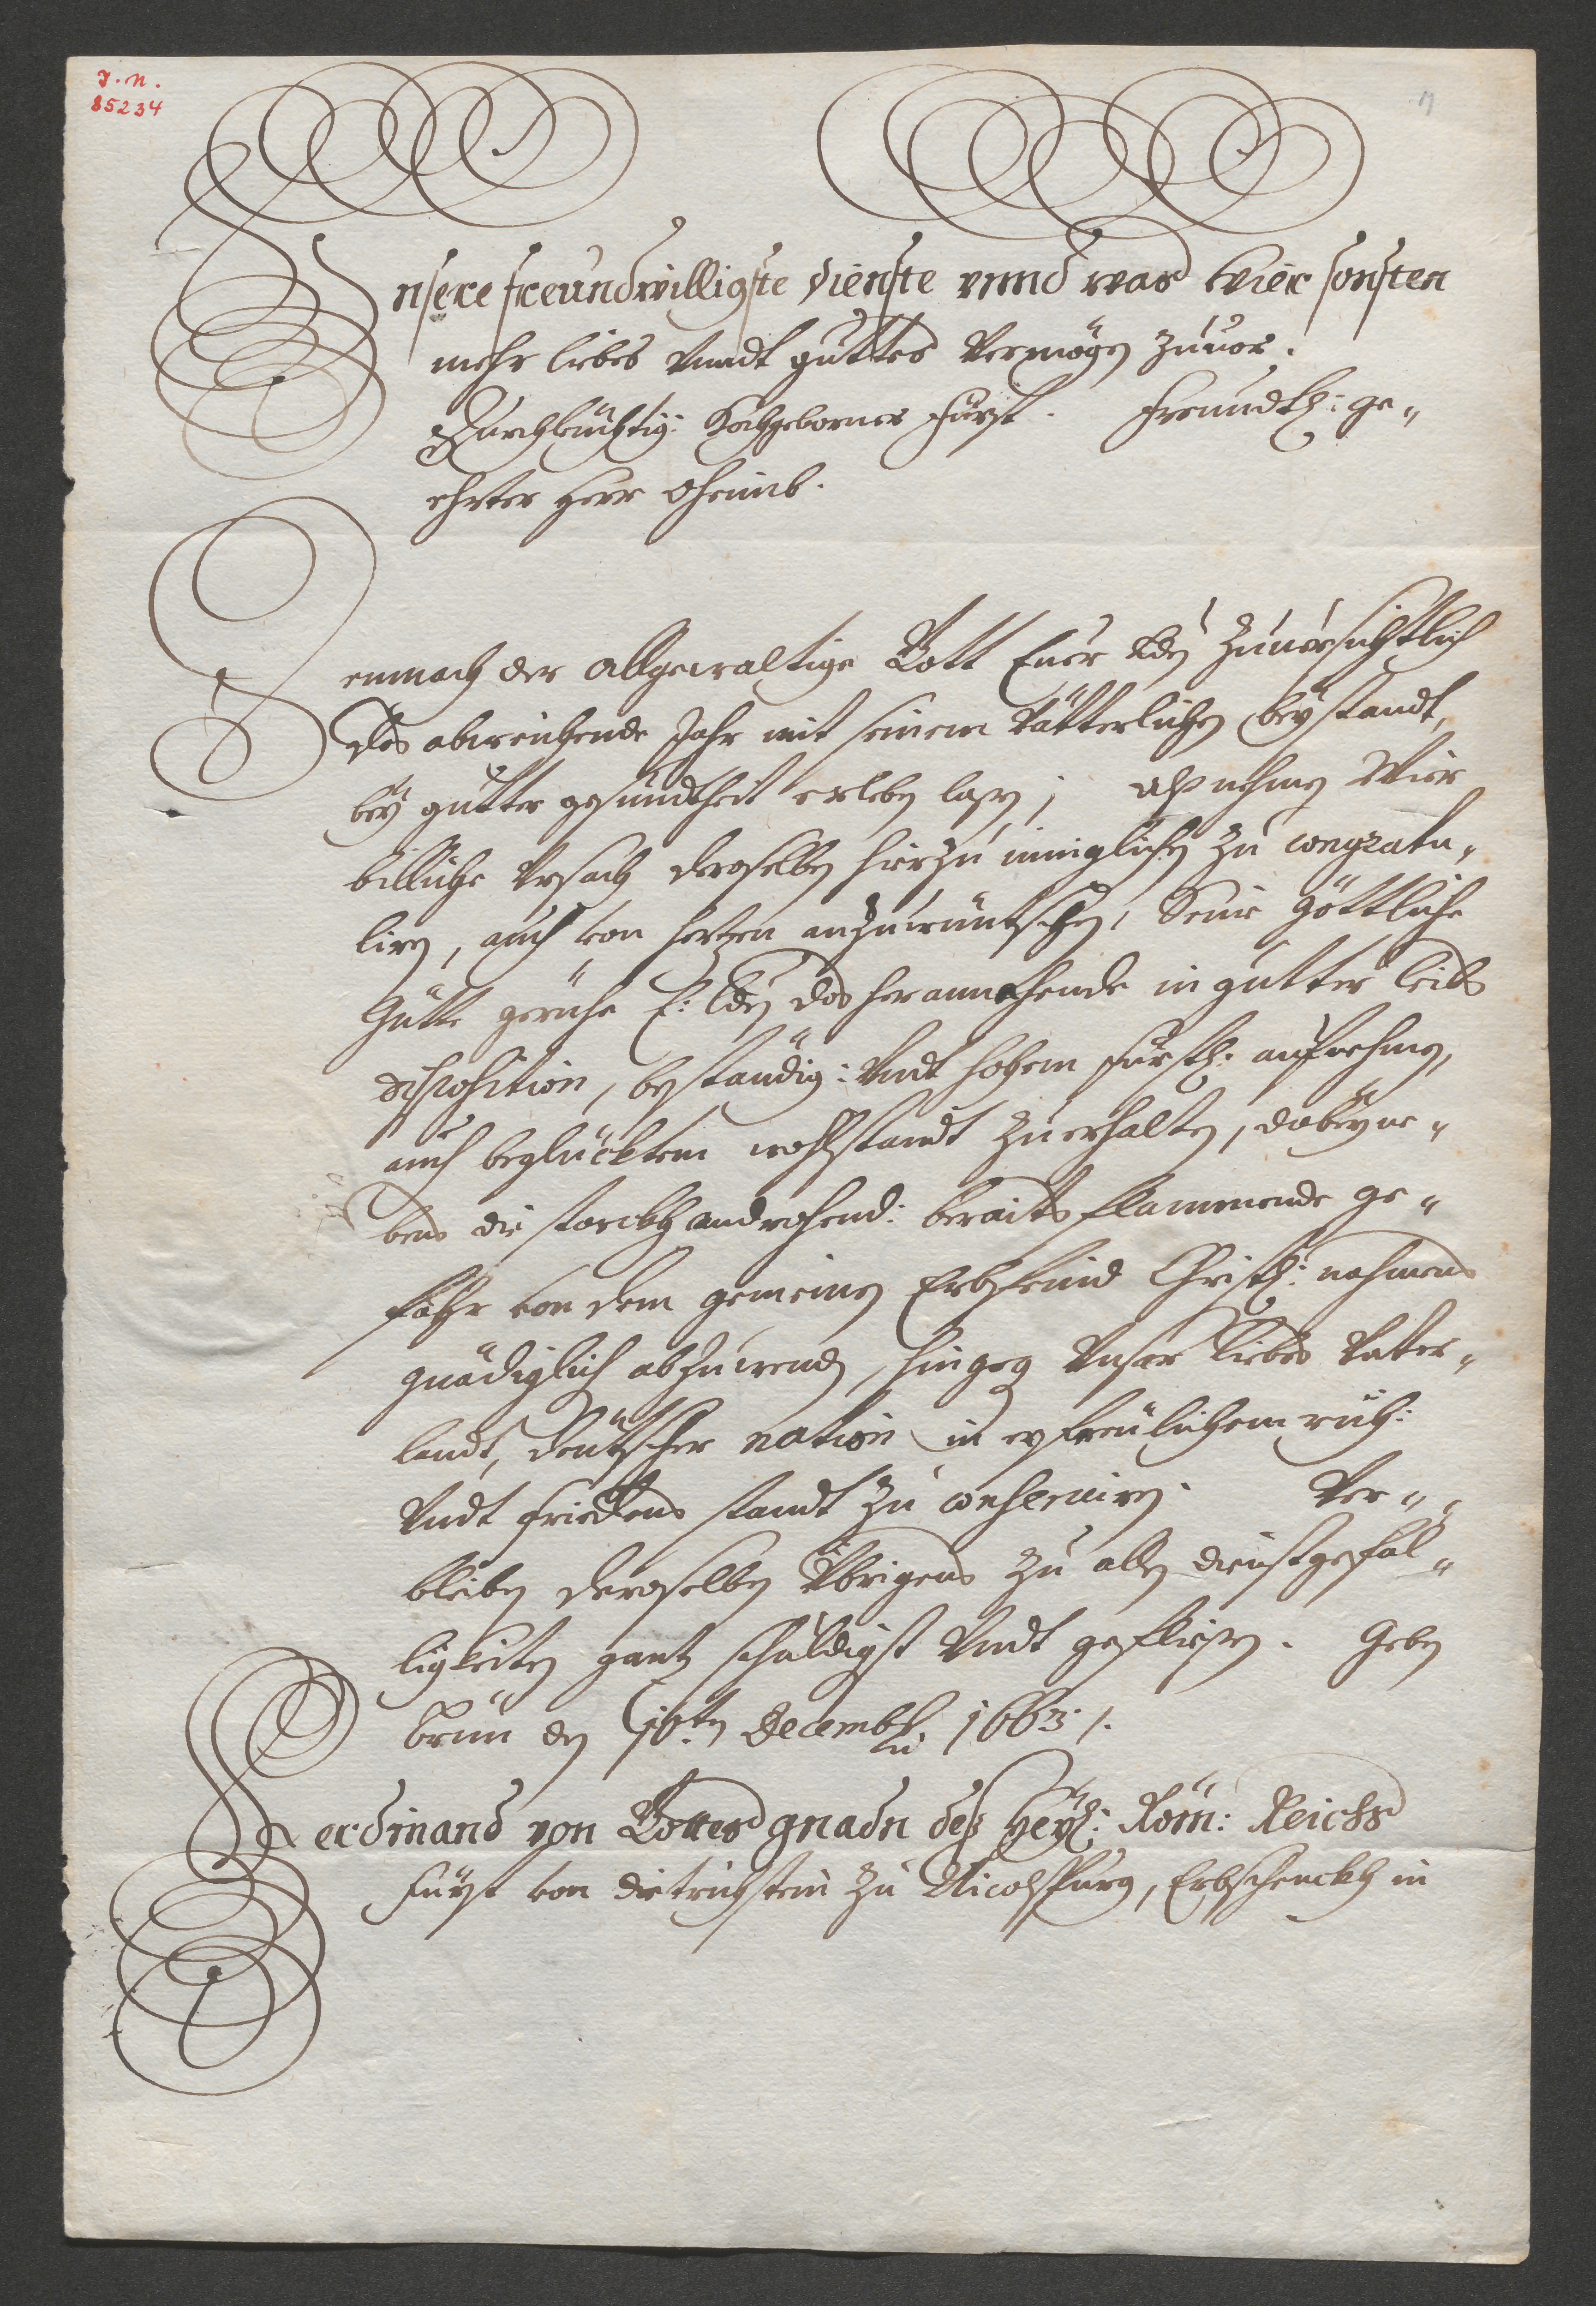 J. N.
85234
Unsere freundwilligste dienste vnnd was Wier sonsten
mehr liebes Vnndt guttes Vermögen zuuor.
Durchleuchtig: Hochgeborner Fürst. Freundtl: ge„
ehrter Herr Oheimb.
Demnach der Allgewaltige Gott Euer Lden zuuersichtlich
das abweichende Jahr mit seinem Vätterlichen beystandt,
bey gutter gesundtheit erleben lasen; Alß nehmen Wier
billiche Vrsach deroselben hierzu inniglichen zu congratu„
liren, auch von hertzen anzuwüntschen, Seine Göttliche
Gütte geruhe E: Lden das herannahende in gutter leibs
disposition, beständig: Vndt hohem fürstl: aufnehmen,
auch beglücktem wohlstandt zuerhalten, dabeyne„
bens die starckh androhend: beraits flammende ge„
fahr von dem gemeinen Erbfeind Christl: nahmens
gnädiglich abzuwenden, hingegen Vnser liebes Vatter„
landt, deutscher nation in erfreulichem ruh:
Vndt friedens standt zu conserviren. Ver„
bleiben deroselben Übrigens zu allen dienstgefäl„
ligkeiten gantz schuldigst Vndt geflissen. Geben
Brünn den 10ten Decembris 1663.
Ferdinand von Gottes gnadn deß Heyl: Röm: Reichs
Fürst von Dietrichstein zu Nicolspurg, Erbschenckh in